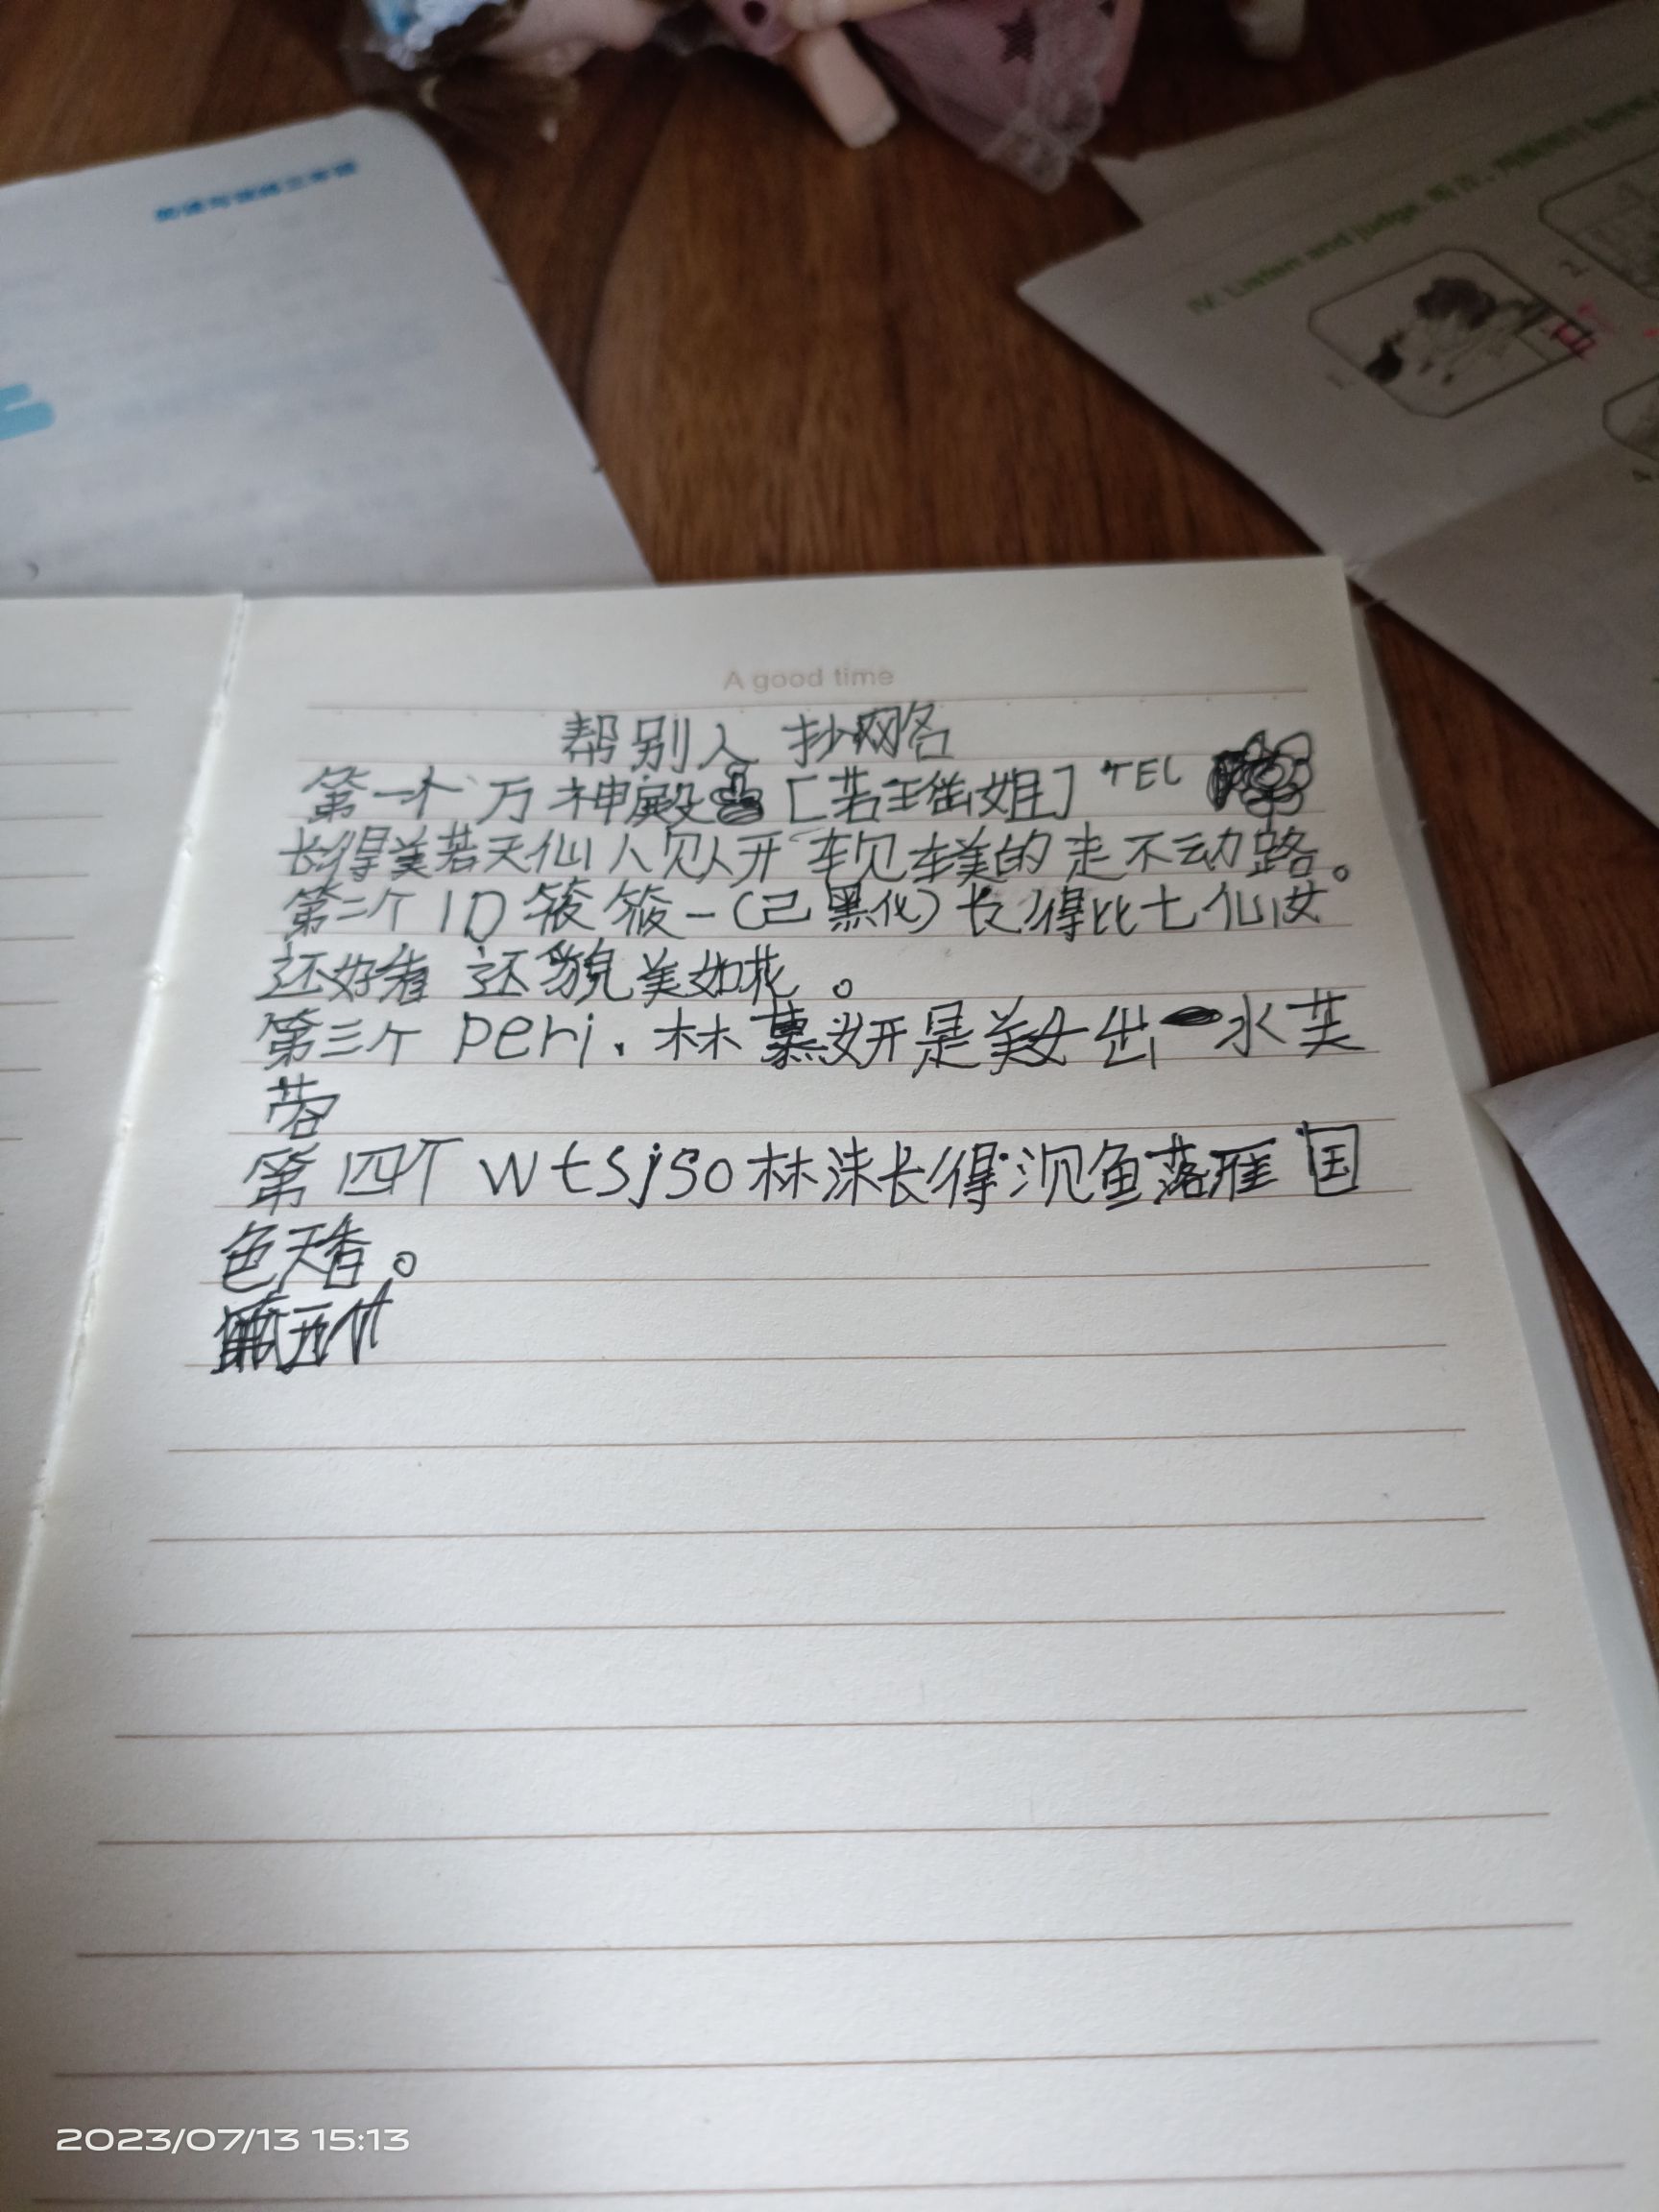 A good time
帮别人 抄网名
第一个 万神殿 [若王御姐] TEL
长得美若天仙人见人开 车见车美的走不动路。
第二个 ID 筱筱一(己黑化)长得比七仙女
还好看 还貌美如花。
第三个 peri.林慕妍是美女出水芙
蓉
第四个 wtsjso林沫长得沉鱼落雁 国
色天香。
IV. Listen and judge.
2.
4.
2023/07/13 15:13